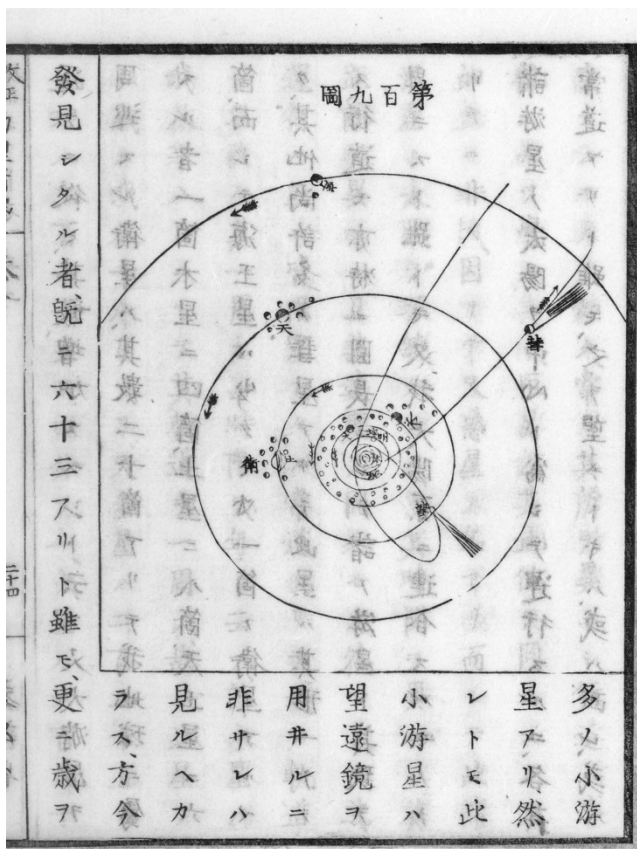 第百九圖
海
天
彗
土
衛
木
彗
多ノ小游
星アリ然
レトモ此
小游星ハ
望遠鏡ヲ
用井ルニ
非サレハ
見ルヘカ
ラス、方今
發見シタル者、既ニ六十三アリト雖モ、更ニ歳ヲ
二十四